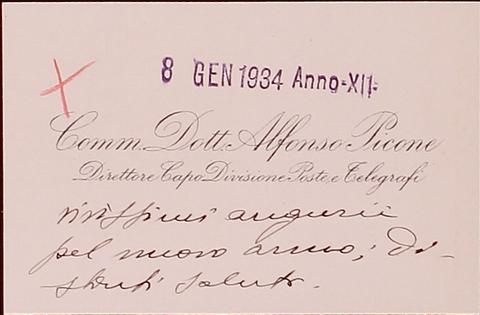 8 GEN 1934 Anno-XII-
Comm. Dott. Alfonso Picone
Direttore Capo Divisione Poste e Telegrafi
vivissimi augurii
pel nuovo anno; di-
stinti saluti.